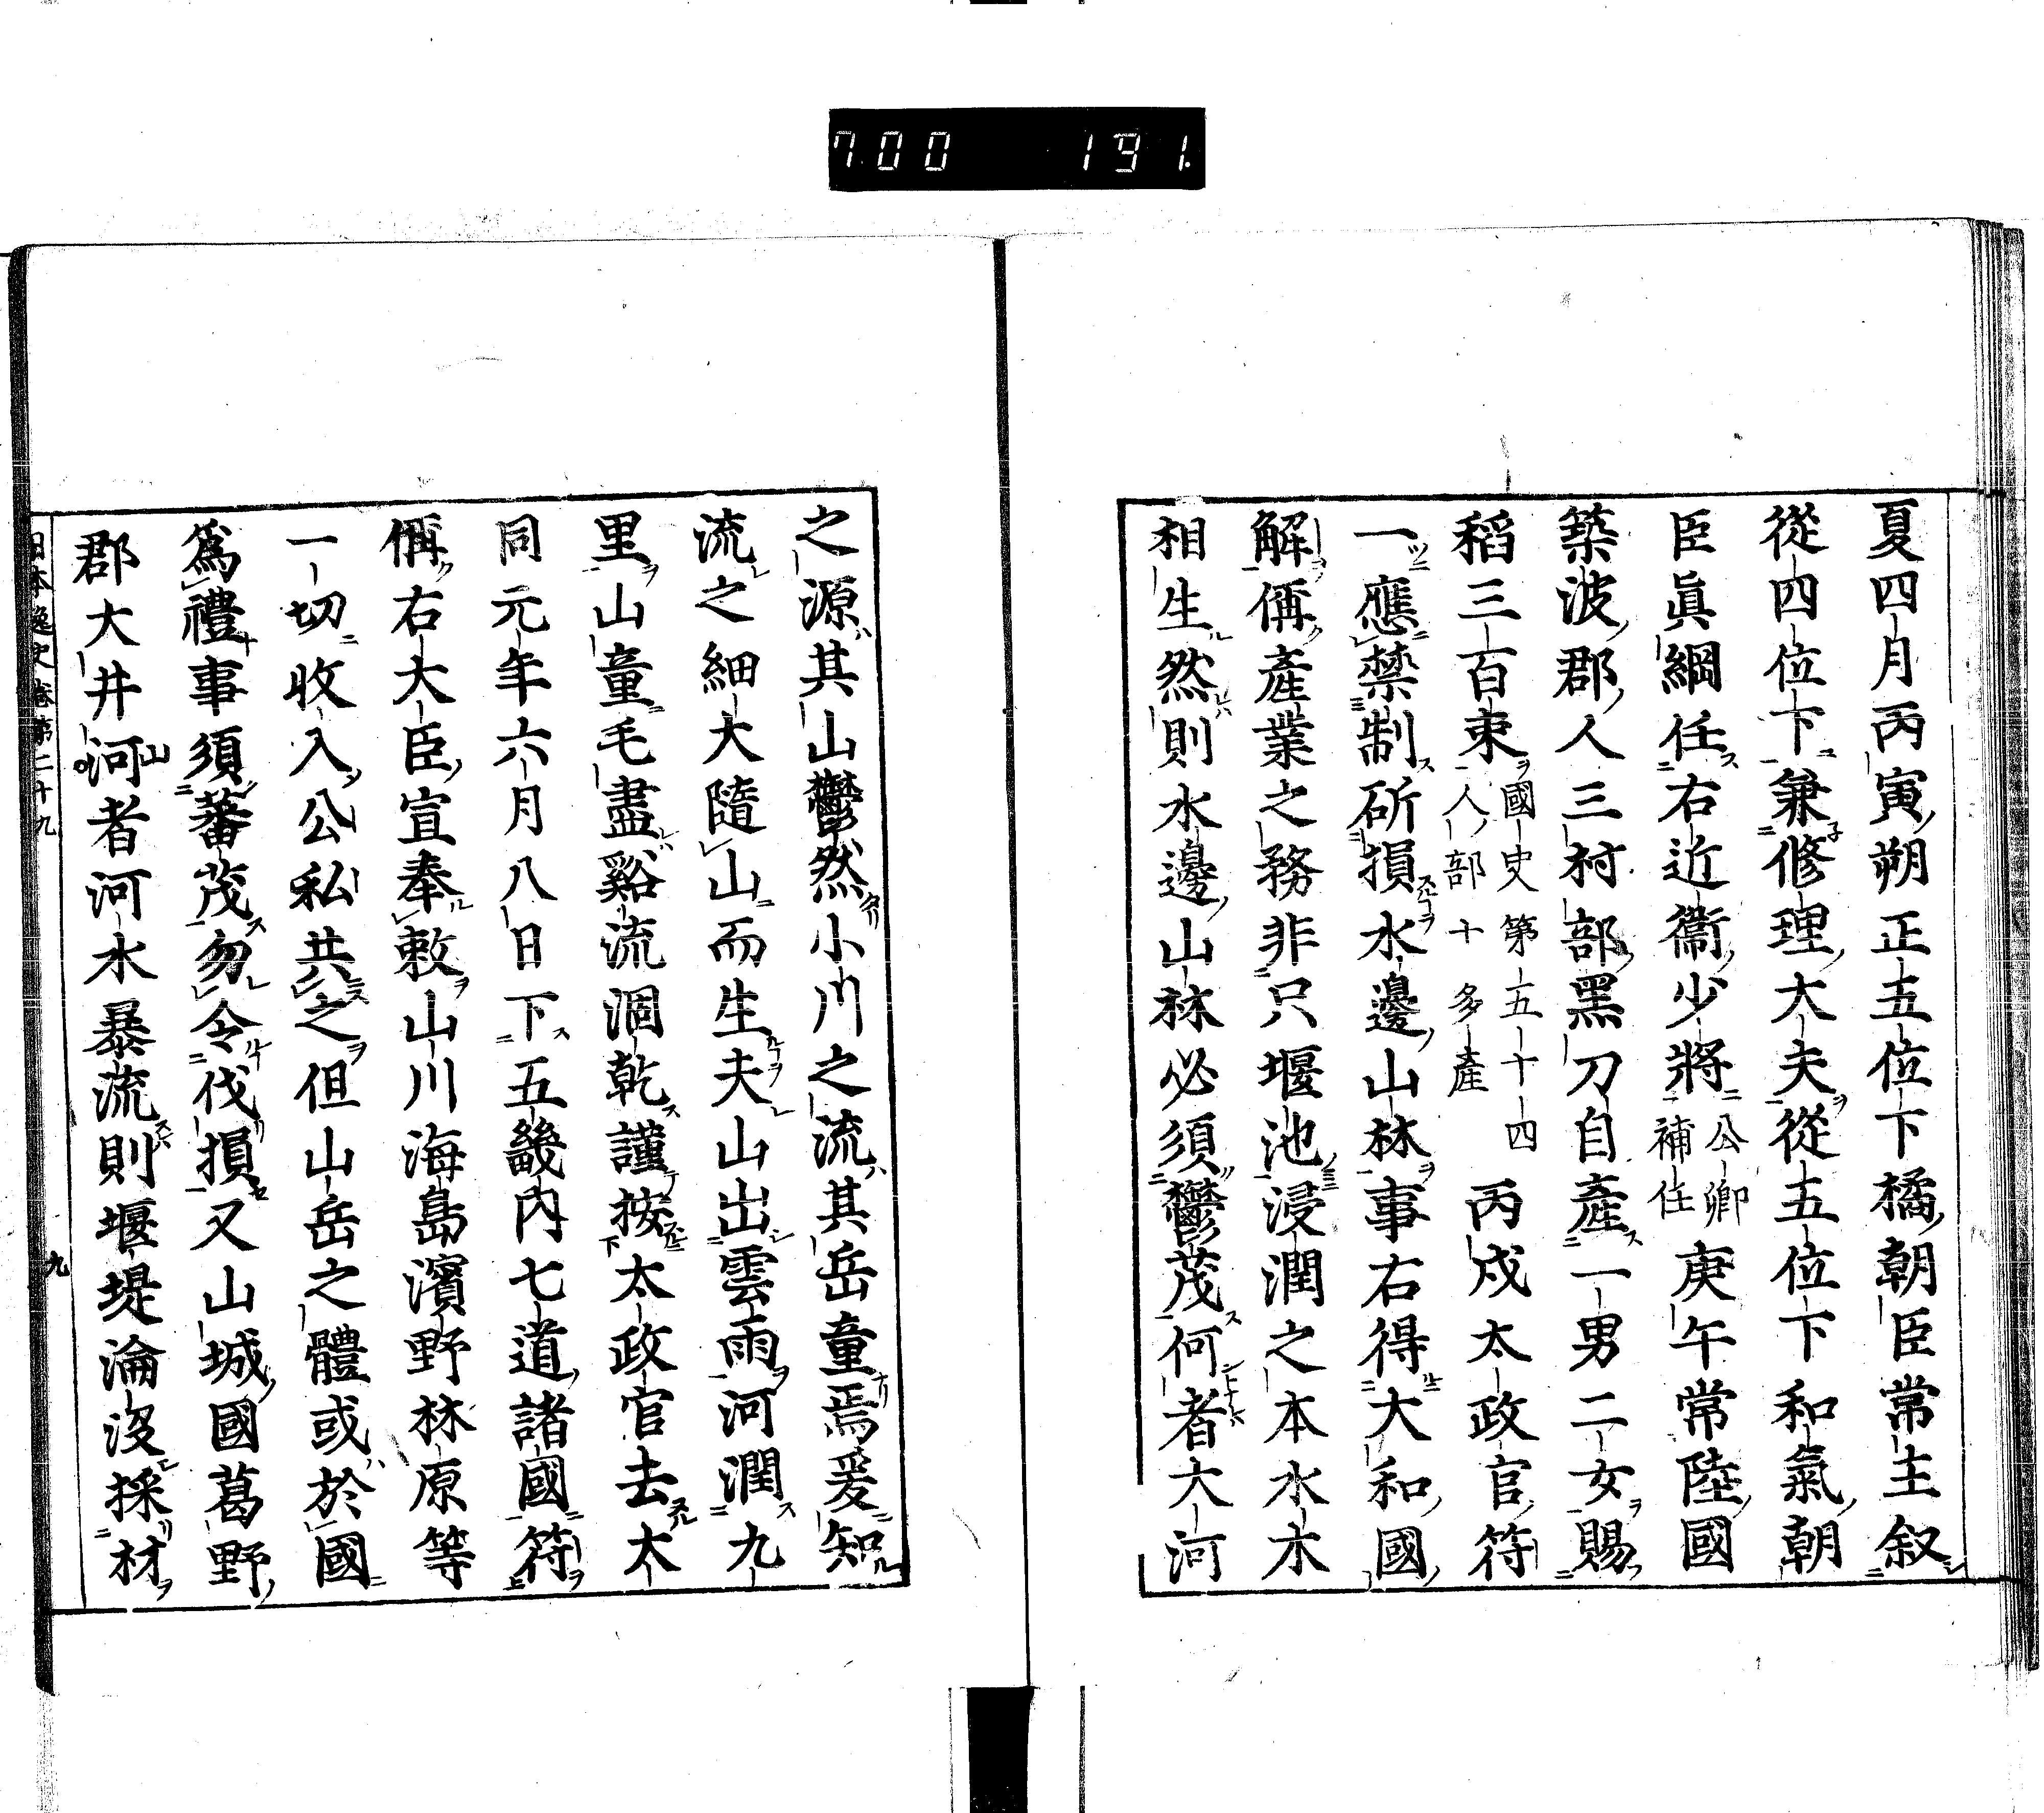 700 191
夏四月丙寅朔正五位下橘朝臣常主叙
從四位下兼修理大夫從五位下和氣朝
臣眞綱任右近衞少將公卿補任庚午常陸國
築波郡人三村部黑刀自產一男二女賜
稻三百束國史第五十四人部十多產丙戍太政官符
一應禁制斫損水邊山林事右得大和國
解偁產業之務非只堰池浸潤之本水木
相生然則水邊山林必須鬱茂何者大河
之源其山鬱然小川之流其岳童焉爰知
流之細大隨山而生夫山出雲雨河潤九
里山童毛盡谿流涸乾謹按太政官去大
同元年六月八日下五畿內七道諸國符
偁右大臣宣奉敕山川海島濱野林原等
一切收入公私共之但山岳之體或於國
爲禮事須蕃茂勿令伐損又山城國葛野
郡大井河山者河水暴流則堰堤淪沒採材
日本逸史卷第二十九 九